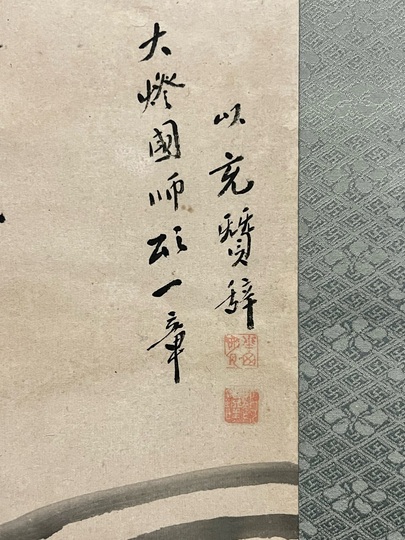 大燈國師頌一章
以充賛辞